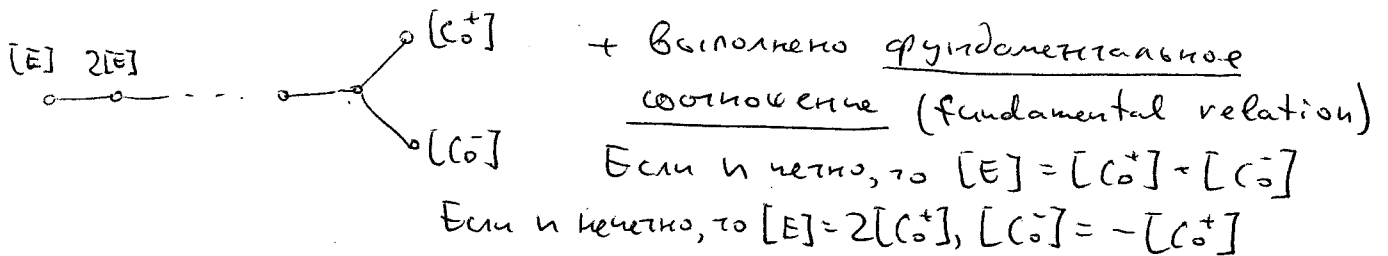 [C₀⁺] + выполнено фундаментальное
[E] 2[E]
соотношение (fundamental relation)
[C₀⁻] Если n четно, то [E] = [C₀⁺] + [C₀⁻]
Если n нечетно, то [E] = 2[C₀⁺], [C₀⁻] = -[C₀⁺]